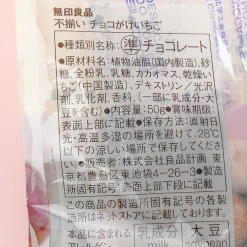 無印良品
不揃い チョコがけいちご
●種類別名称:準チョコレート
●原材料名:植物油脂(国内製造)、砂
糖、全粉乳、乳糖、カカオマス、乾燥い
ちご(中国製造)、デキストリン/光沢
剤、乳化剤、香料、(一部に乳成分・大
豆を含む)●内容量:50g●賞味期限:
表面上部に記載●保存方法:直射日
光・高温多湿の場所を避けて、28℃
以下の涼しい場所で保存してくださ
い。●販売者:株式会社良品計画 東
京都豊島区東池袋4-26-3●製造
所固有記号:表面上部下段に記載
この商品の製造所固有記号の各製
造所はネットストアにてご覧いただけ
ます。
乳成分 大豆
milk soybean
アレルゲン